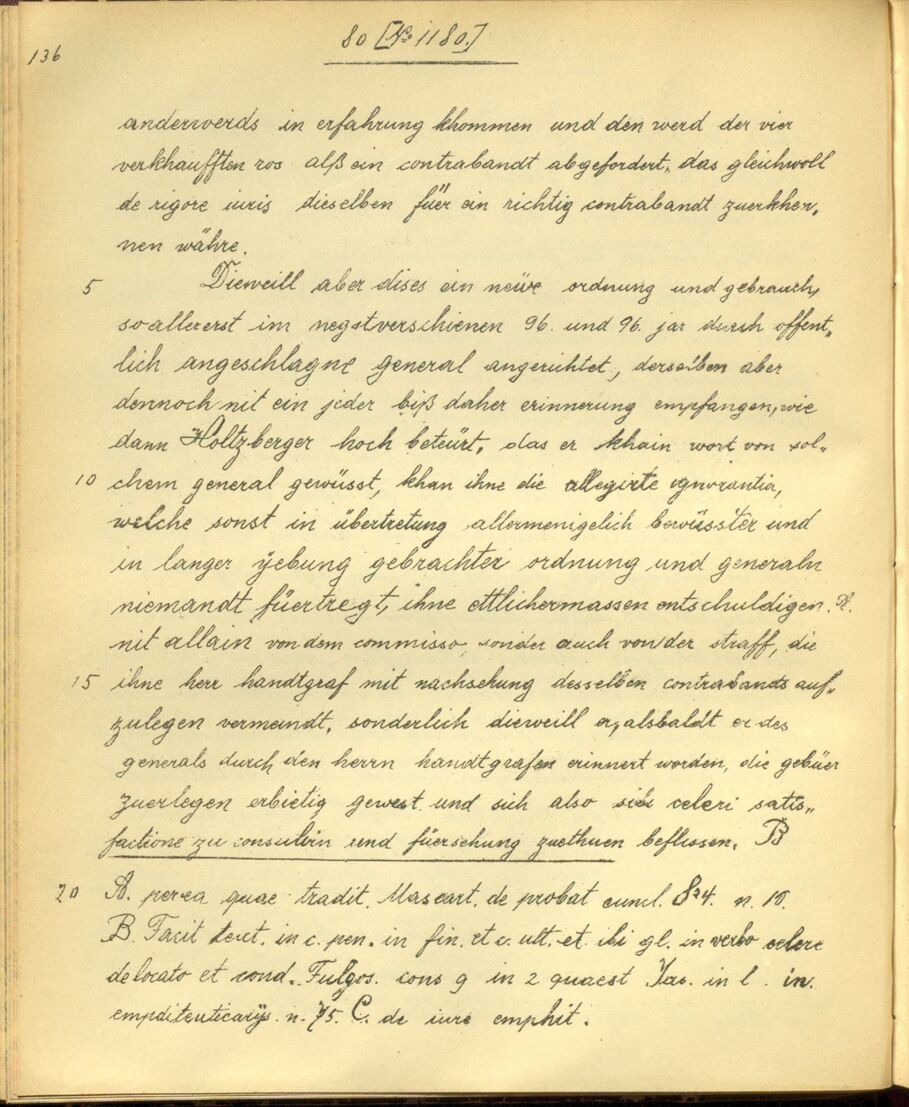 136
80 [No 1180.]
anderwerds in erfahrung khommen und den werd der vier
verkhaufften ros alß ein contrabandt abgefordert, das gleichwoll
de rigore iuris dieselben füer ein richtig contrabandt zuerkhen„
nen währe.
5 Dieweill aber dises ein neüwe ordnung und gebrauch,
so allererst im negstverschienen 96. und 96. jar durch offent„
lich angeschlagne general angerichtet, derselben aber
dennoch nit ein jeder biß daher erinnerung empfangen, wie
dann Holtzberger hoch beteürt, das er khain wort von sol„
10 chem general gewüsst, khan ihne die allegirte ignorantia,
welche sonst in übertretung allermenigelich bewüsster und
in langer yebung gebrachter ordnung und generaln
niemandt füertregt, ihne ettlichermassen entschuldigen. A.
nit allain von dem commisso, sonder auch von der straff, die
15 ihne herr handtgraf mit nachsehung desselben contrabands auf„
zulegen vermeindt, sonderlich dieweill er, alsbaldt er des
generals durch den herrn handtgrafen erinnert worden, die gebüer
zuerlegen erbietig gewest und sich also celeri satis„
factione zu consulirn und füersehung zuethuen beflissen. B
20 A. per ea quae tradit. Mascart. de probat concl. 824. n. 10.
B. Facit text. in c. pen. in fin. et c. ult. et ibi gl. in verbo celere
de locato et cond. Fulgos. cons 9 in 2 quaest Jas. in l. in.
emphiteuticarijs. n. 75. C. de iure emphit.